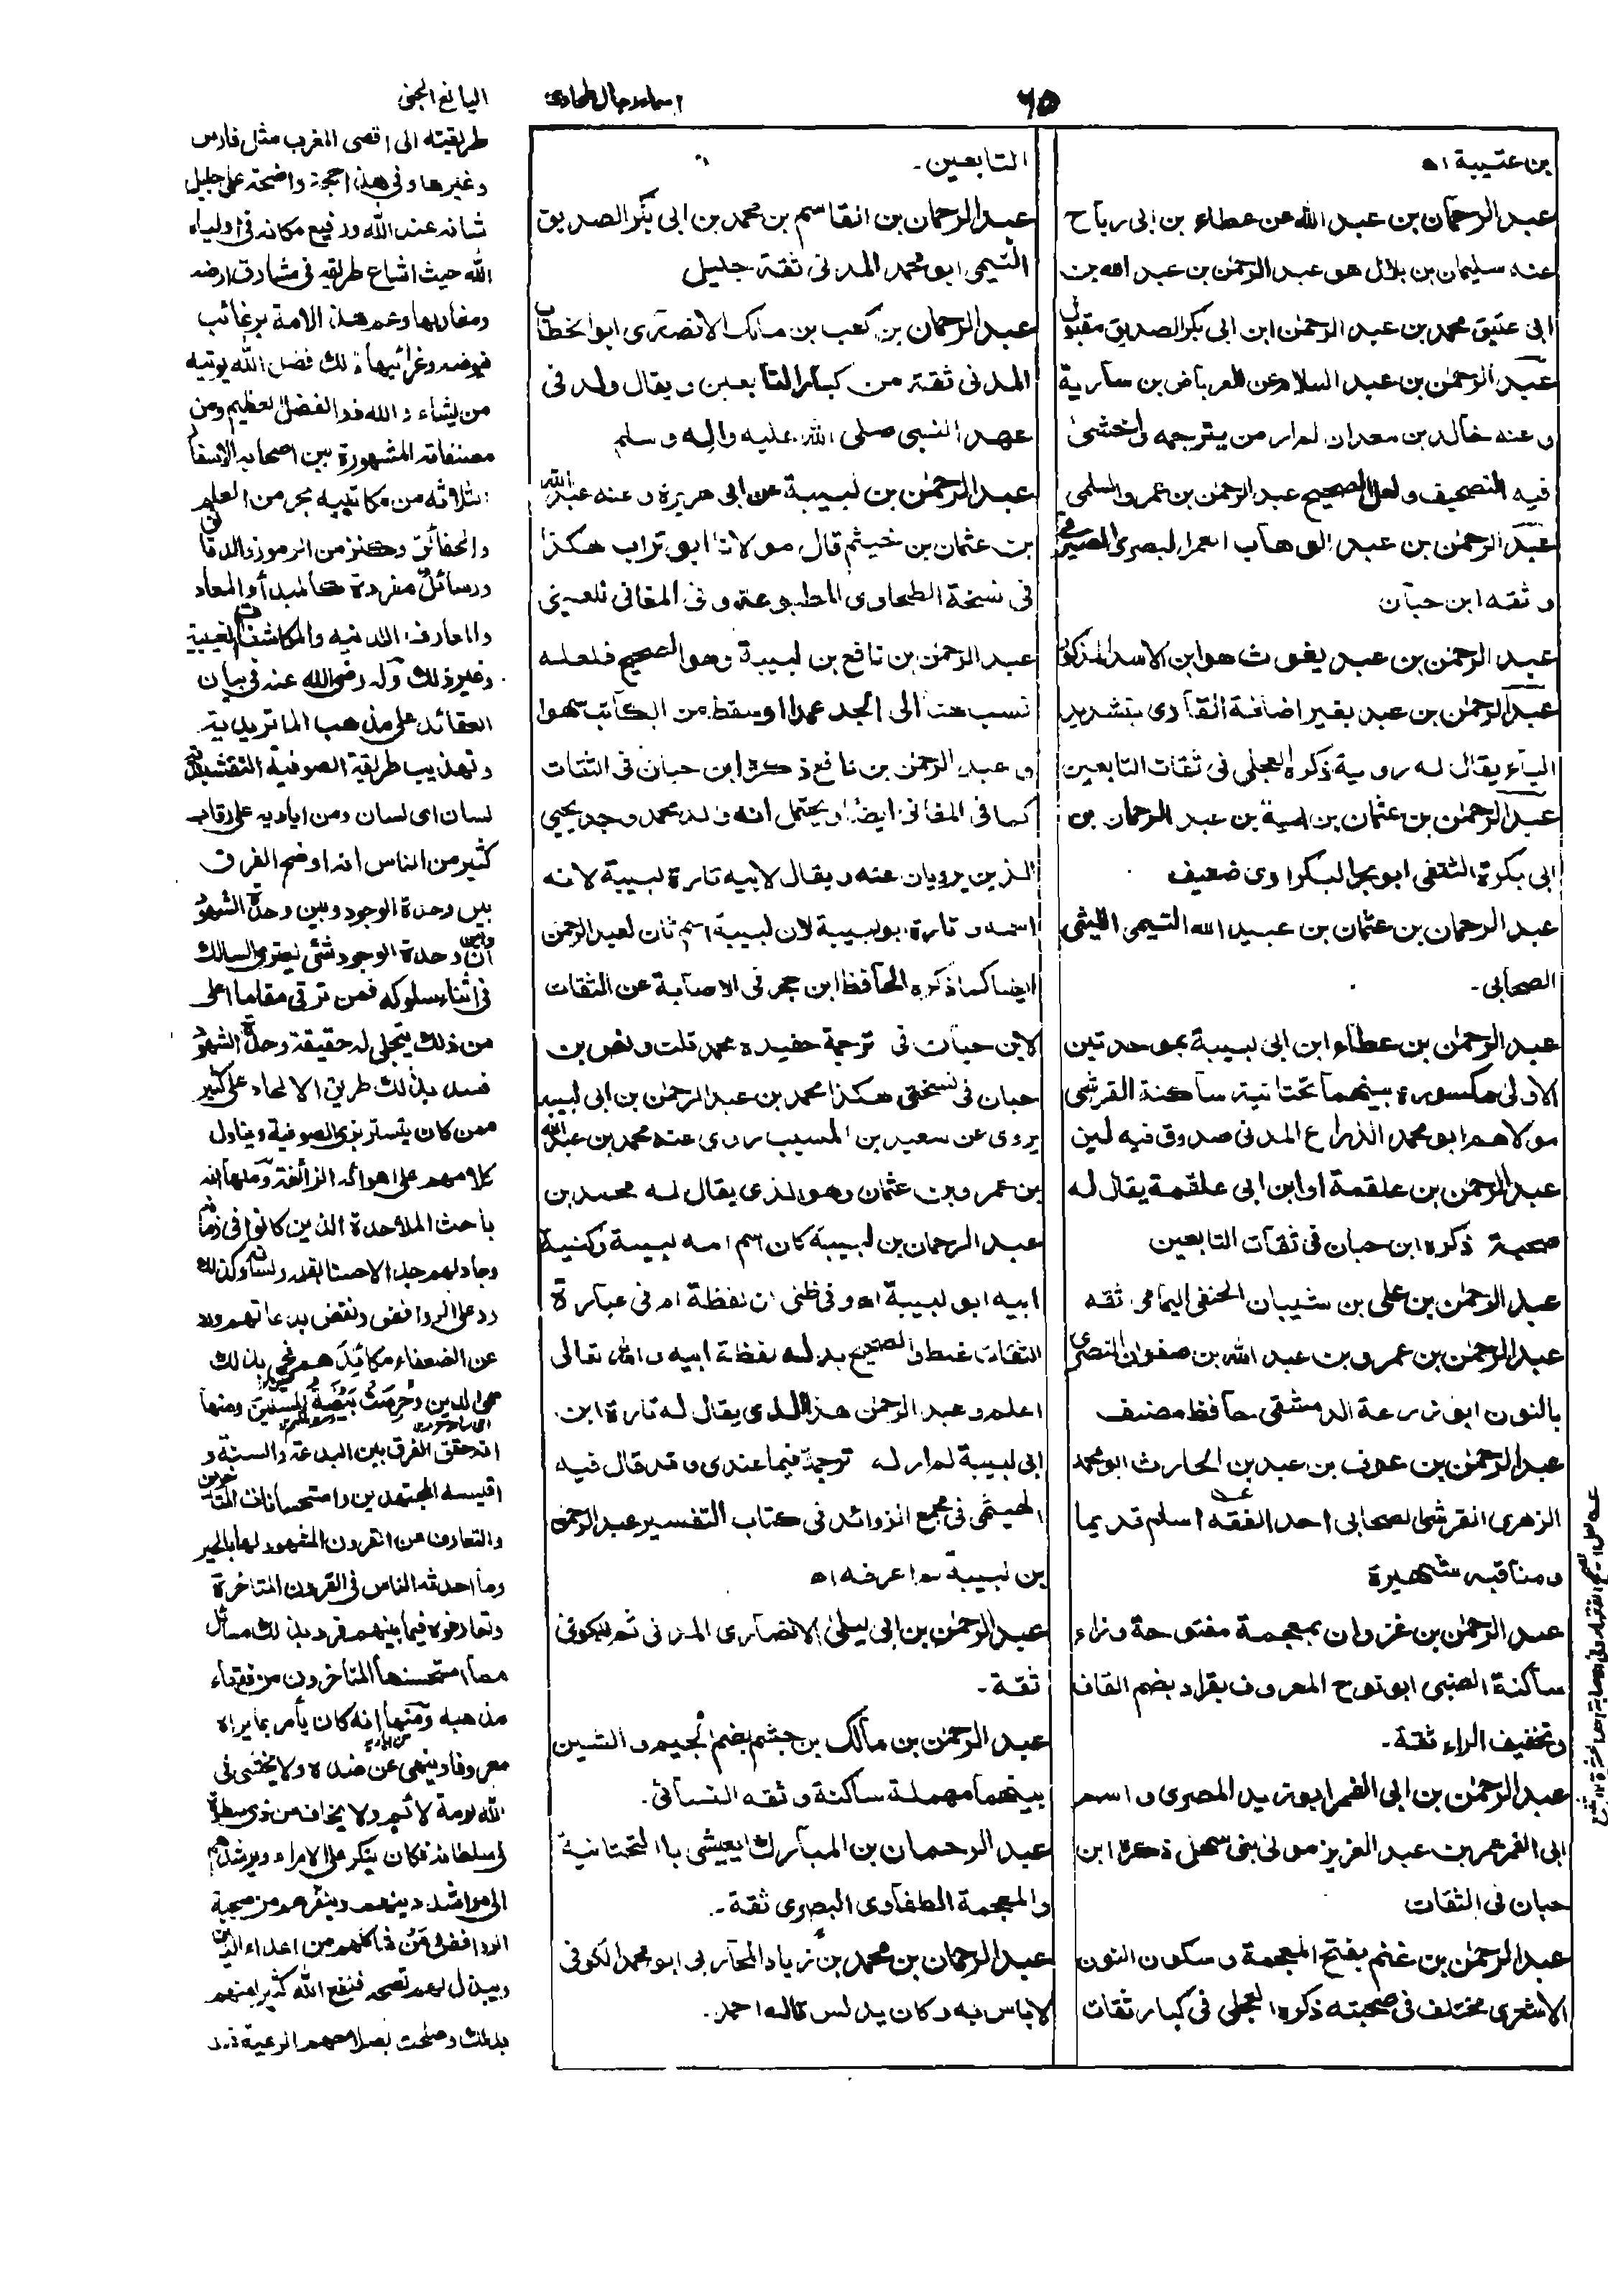 ٦٥
اسماء رجال طحاوى
اليانع الجنى
بن عتيبة اه
عبد الرحمان بن عبد الله عن عطاء بن ابى رباح
عنه سليمان بن بلال هو عبد الرحمن بن عبد الله بن
ابى عتيق محمد بن عبد الرحمن ابن ابى بكر الصديق مقبول
عبد الرحمن بن عبد السلام عن العرباض بن سارية
وعنه خالد بن معدان لم ار من يترجمه واخشى
فيه التصحيف ولعل الصحيح عبد الرحمن بن عمرو السلمى
عبد الرحمن بن عبد الوهاب العمى البصرى الصيرفى
وثقه ابن حبان
عبد الرحمن بن عبد يغوث هو ابن الاسد المذكور
عبد الرحمن بن عبد بغير اضافة القارى بتشديد
الياء يقال له روية ذكره العجلى فى ثقات التابعين
عبد الرحمن بن عثمان بن امية بن عبد الرحمان بن
ابى بكرة الثقفى ابو بحر البكراوى ضعيف
عبد الرحمان بن عثمان بن عبيد الله التيمى الليثى
الصحابى۔
عبد الرحمن بن عطاء ابن ابى لبيبة بموحدتين
الاولى مكسورة بينهما تحتانية ساكنة القرشى
مولاهم ابو محمد الذراع المدنى صدوق فيه لين
عبد الرحمن بن علقمة او ابن ابى علقمة يقال له
صحبة ذكره ابن حبان فى ثقات التابعين
عبد الرحمن بن على بن شيبان الحنفى اليمامى ثقه
عبد الرحمن بن عمرو بن عبد الله بن صفوان النصرى
بالنون ابو زرعة الدمشقى حافظ مصنف
عبد الرحمن بن عوف بن عبد بن الحارث ابو محمد
الزهرى القرشى الصحابى احد الفقه اسلم قديما
ومناقبه شهيرة
عبد الرحمن بن غزوان بمعجمة مفتوحة وزاء
ساكنة الضبى ابو نوح المعروف بقراد بضم القاف
وتخفيف الراء ثقة۔
عبد الرحمن بن ابى الغمر ابو زيد المصرى واسم
ابى الغمر عمر بن عبد العزيز مولى بنى سهل ذكره ابن
حبان فى الثقات
عبد الرحمن بن غنم بفتح المعجمة وسكون النون
الاشعرى مختلف فى صحبته ذكره العجلى فى كبار ثقات
التابعين۔
عبد الرحمان بن القاسم بن محمد بن ابى بكر الصديق
التيمى ابو محمد المدنى ثقة جليل
عبد الرحمان بن كعب بن مالك الانصارى ابو الخطاب
المدنى ثقة من كبار التابعين ويقال ولد فى
عهد النبى صلى الله عليه واله وسلم
عبد الرحمن بن لبيبة عن ابى هريرة وعنه عبد الله
بن عثمان بن خيثم قال مولانا ابو تراب هكذا
فى نسخة الطحاوى المطبوعة وفى المغانى للعينى
عبد الرحمن بن نافع بن لبيبة وهو الصحيح فلعله
نسب هنا الى الجد عمدا او سقط من الكاتب سهوا
و عبد الرحمن بن نافع ذكره ابن حبان فى الثقات
كما فى المغانى ايضا ويحتمل انه والد محمد وجد يحيى
الذين يرويان عنه ويقال لابيه تارة لبيبة لانه
اسمه و تارة ابو لبيبة لان لبيبة اسم ثان لعبد الرحمن
ايضا كما ذكره الحافظ ابن حجر فى الاصابة عن الثقات
لابن حبان فى ترجمة حفيده محمد قلت ونص بن
حبان فى نسختى هكذا محمد بن عبد الرحمن بن ابى لبيبه
يروى عن سعيد بن المسيب روى عنه محمد بن عبد الله
بن عمرو بن عثمان وهو الذى يقال له محمد بن
عبد الرحمان بن لبيبة كان اسم امه لبيبة وكنية
ابيه ابو لبيبة اه وفى ظنى ان لفظة ام فى عبارة
الثقات غلط والصحيح بدله لفظة ابيه والله تعالى
اعلم وعبد الرحمن هذا الذى يقال له تارة ابن
ابى لبيبة لم ار له ترجمة فيما عندى وقد قال فيه
الهيثمى فى مجمع الزوائد فى كتاب التفسير عبد الرحمن
بن لبيبة لم اعرفه اه
عبد الرحمن بن ابى ليلى الانصارى المدنى ثم الكوفى
ثقة۔
عبد الرحمن بن مالك بن جشم بضم الجيم والشين
بينهما مهملة ساكنة وثقه النسائى۔
عبد الرحمان بن المبارك العيشى با التحتانية
والمعجمة الطفاوى البصرى ثقة۔
عبد الرحمان بن محمد بن زياد المحاربى ابو محمد الكوفى
لا باس به وكان يدلس قاله احمد۔
طريقته الى اقصى المغرب مثل فارس
وغيرها وفى هذا حجة واضحة على جليل
شانه عند الله ورفيع مكانه فى اولياء
الله حيث اشاع طريقه فى مشارق ارضه
ومغاربها وعم هذه الامة برغائب
فيوضه وغرائبها ذلك فضل الله يوتيه
من يشاء والله ذو الفضل العظيم ومن
مصنفاته المشهورة بين اصحابه الاسفار
الثلاثه من مكاتيبه بحر من العلم
والحقائق وكنز من الرموز والدقائق
ورسائل مفردة كالمبدأ والمعاد
والمعارف اللدنيه والمكاشفات الغيبية
وغير ذلك وله رضى الله عنه فى بيان
العقائد على مذهب الماتريدية
وتهذيب طريقة الصوفية النقشبندية
لسان اى لسان ومن اياديه على رقاب
كثير من الناس انه اوضح الفرق
بين وحدة الوجود وبين وحدة الشهود
وبين ان وحدة الوجود شئ يعترى السالك
فى اثناء سلوكه فمن ترقى مقاما اعلى
من ذلك يتجلى له حقيقة وحدة الشهود
فسد بذلك طريق الالحاد على كثير
ممن كان يتستر بزى الصوفية ويتاول
كلامهم على اهوائه الزائغة ومنها انه
باحث الملاحدة الذين كانوا فى زمانه
وجادلهم جدالا حسنا بقلمه ولسانه وكذلك
رد على الروافض ونقض بدعاتهم ورد
عن الضعفاء مكائدهم فحمى بذلك
حمى الدين وحرمت بيضة المسلمين ومنها
انه حقق الفرق بين البدعة والسنة و
اقيسه المجتهدين واستحسانات المتاخرين
والتعارف عن القرون المشهود لها بالخير
وما احدثه الناس فى القرون المتاخرة
وتعارفوه فيما بينهم فرد بذلك مسائل
مما استحسنها المتاخرون من فقهاء
مذهبه ومنها انه كان يأمر بما يراه
معروفا وينهى عن ضده ولا يخشى فى
الله لومة لائم ولا يخاف من ذى سطوة
فى سلطانه فكان ينكر على الامراء ويرشدهم
الى مراشد دينهم وينفرهم من صحبة
الروافض ومن شاكلهم من اعداء الدين
ويبذل لهم نصحه فنفع الله كثيرا منهم
بذلك وصلحت بصلاحهم الرعية